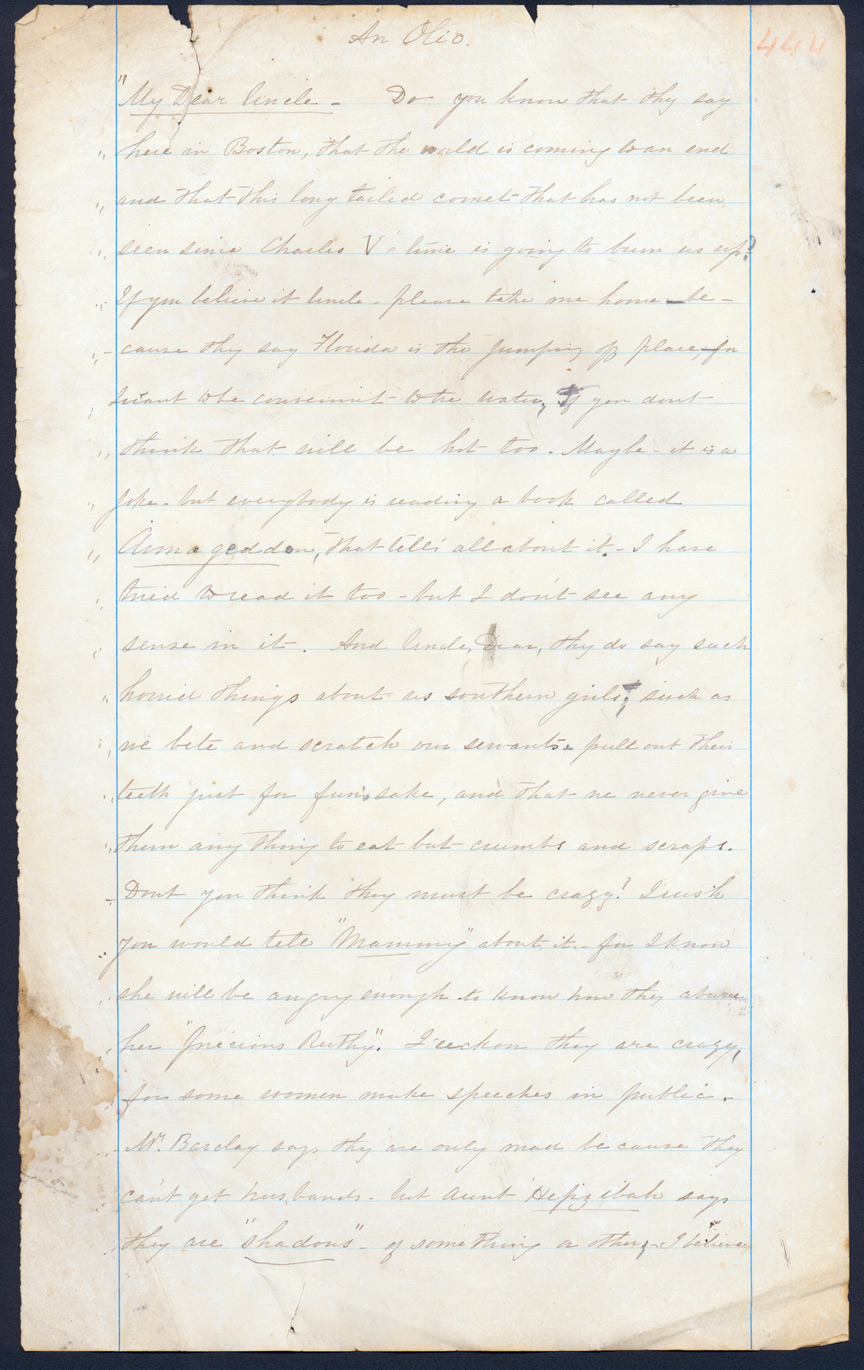 An Olio.
444
"My Dear Uncle - Do you know that they say
" here in Boston, that the world is coming to an end
" and that this long tailed comet that has not been
" seen since Charles V's time is going to burn us up?
" If you believe it Uncle - please take me home - be -
" - cause they say Florida is the jumping off place, for
" I want to be convenient to the water, If you dont
" think that will be hot too. Maybe - it is a
" joke - but everybody is reading a book called
" Armageddon, that tells all about it. - I have
" tried to read it too - but I don't see any
" sense in it. And Uncle, Dear, they do say such
" horrid things about us southern girls; such as
" we bite and scratch our servants - pull out their
" teeth just for fun's sake, and that we never give
" them any thing to eat but crumbs and scraps.
- Dont you think they must be crazy? I wish
" you would tell "Mammy" about it - for I know
" she will be angry enough to know how they abuse
" her "precious Ruthy". I reckon they are crazy,
" for some women make speeches in public.
" Mr. Barclay says they are only mad because they
" can't get husbands - but Aunt Hepzibah says
" they are "shadows" - of something or other, - I believe